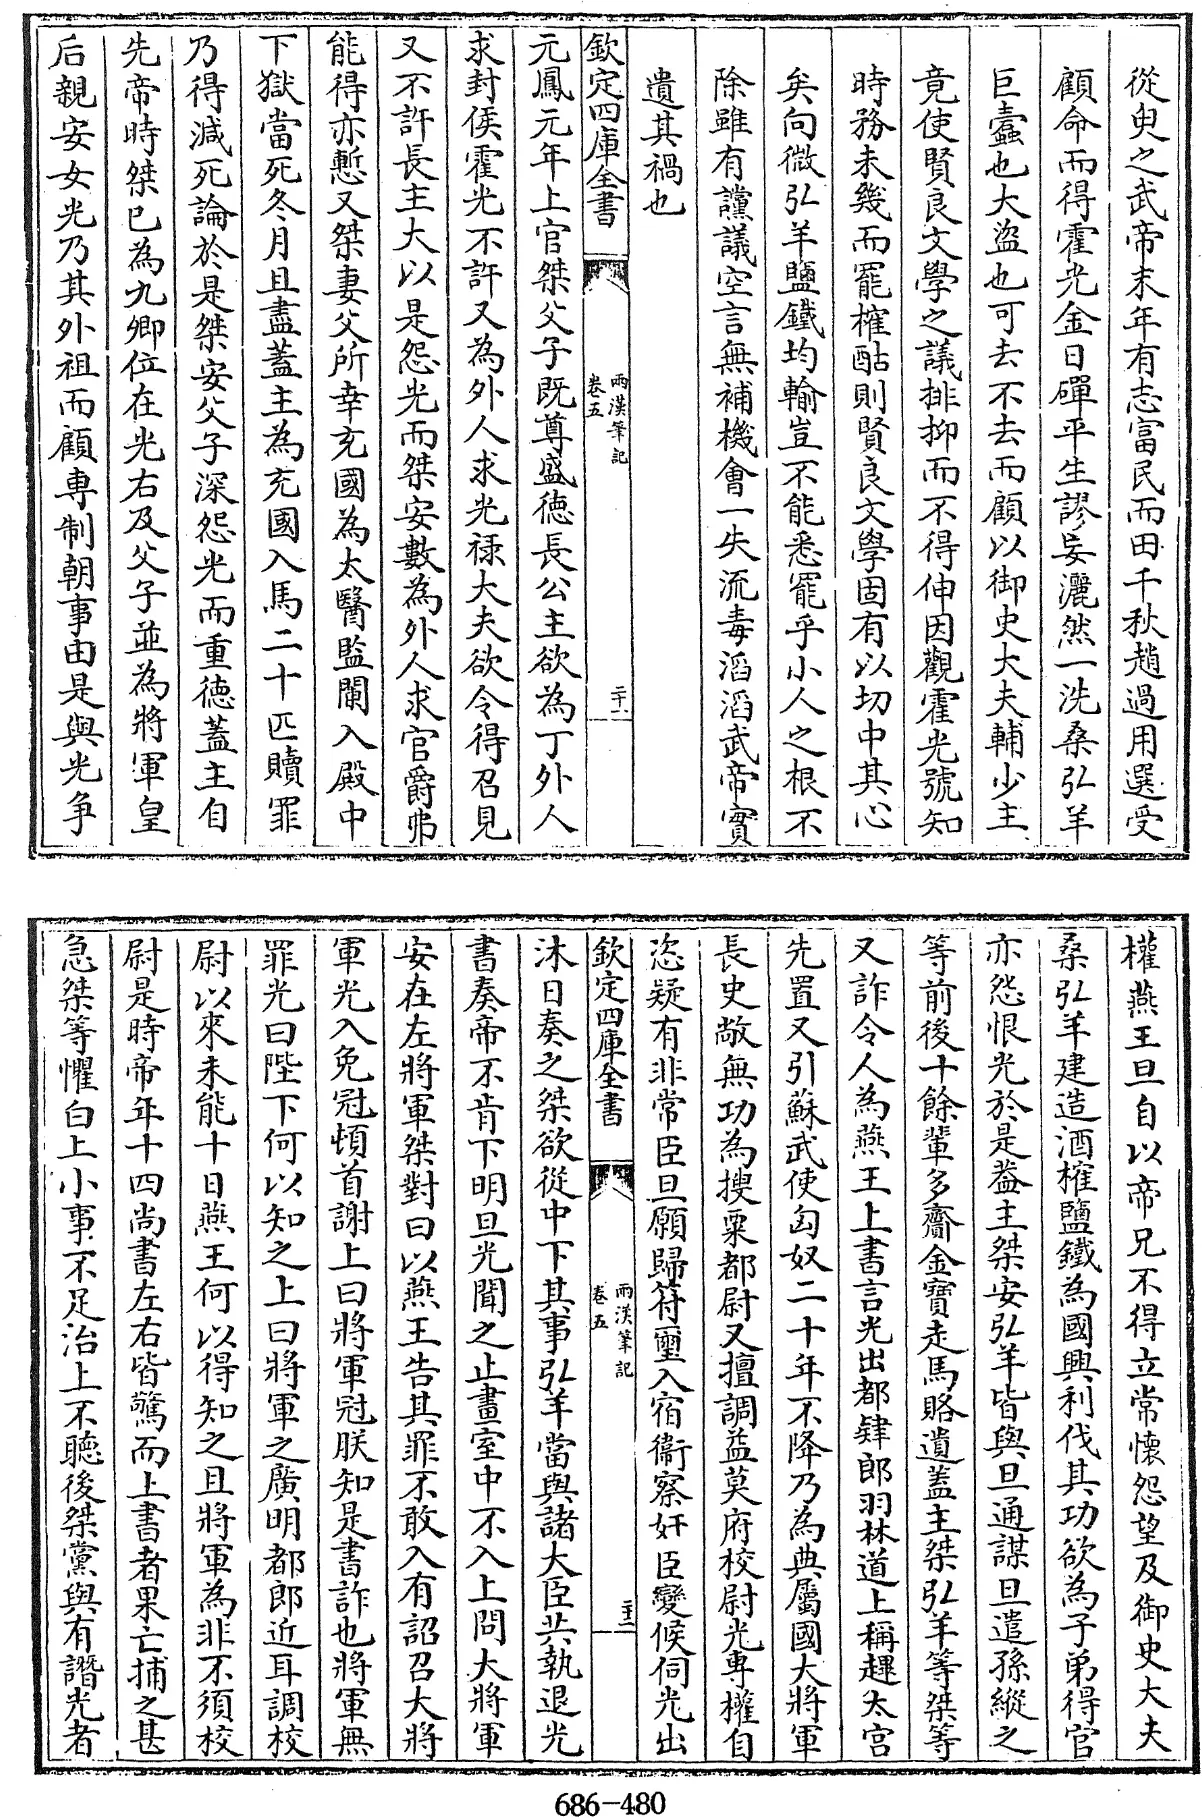 從臾之武帝末年有志富民而田千秋趙過用選受
顧命而得霍光金日磾平生謬妄灑然一洗桑弘羊
巨蠹也大盜也可去不去而顧以御史大夫輔少主
竟使賢良文學之議排抑而不得伸因觀霍光號知
時務未幾而罷榷酤則賢良文學固有以切中其心
矣向微弘羊鹽鐵均輸豈不能悉罷乎小人之根不
除雖有讜議空言無補機會一失流毒滔滔武帝實
遺其禍也
欽定四庫全書
兩漢筆記
卷五
二十一
元鳳元年上官桀父子既尊盛德長公主欲為丁外人
求封侯霍光不許又為外人求光禄大夫欲令得召見
又不許長主大以是怨光而桀安數為外人求官爵弗
能得亦慙又桀妻父所幸充國為太醫監闌入殿中
下獄當死冬月且盡蓋主為充國入馬二十匹贖罪
乃得減死論於是桀安父子深怨光而重徳蓋主自
先帝時桀已為九卿位在光右及父子並為將軍皇
后親安女光乃其外祖而顧專制朝事由是與光爭
權燕王旦自以帝兄不得立常懷怨望及御史大夫
桑弘羊建造酒榷鹽鐵為國興利伐其功欲為子弟得官
亦怨恨光於是葢主桀安弘羊皆與旦通謀旦遣孫縱之
等前後十餘輩多齎金寶走馬賂遺蓋主桀弘羊等桀等
又詐令人為燕王上書言光出都肄郎羽林道上稱䟆太官
先置又引蘇武使匈奴二十年不降乃為典屬國大將軍
長史敞無功為搜粟都尉又擅調益莫府校尉光專權自
恣疑有非常臣旦願歸符璽入宿衞察奸臣變候伺光出
欽定四庫全書
兩漢筆記
卷五
二十二
沐日奏之桀欲從中下其事弘羊當與諸大臣共執退光
書奏帝不肯下明旦光聞之止畫室中不入上問大將軍
安在左將軍桀對曰以燕王告其罪不敢入有詔召大將
軍光入免冠頓首謝上曰將軍冠朕知是書詐也將軍無
罪光曰陛下何以知之上曰將軍之廣明都郎近耳調校
尉以來未能十日燕王何以得知之且將軍為非不須校
尉是時帝年十四尚書左右皆驚而上書者果亡捕之甚
急桀等懼白上小事不足治上不聽後桀黨與有譖光者
686-480